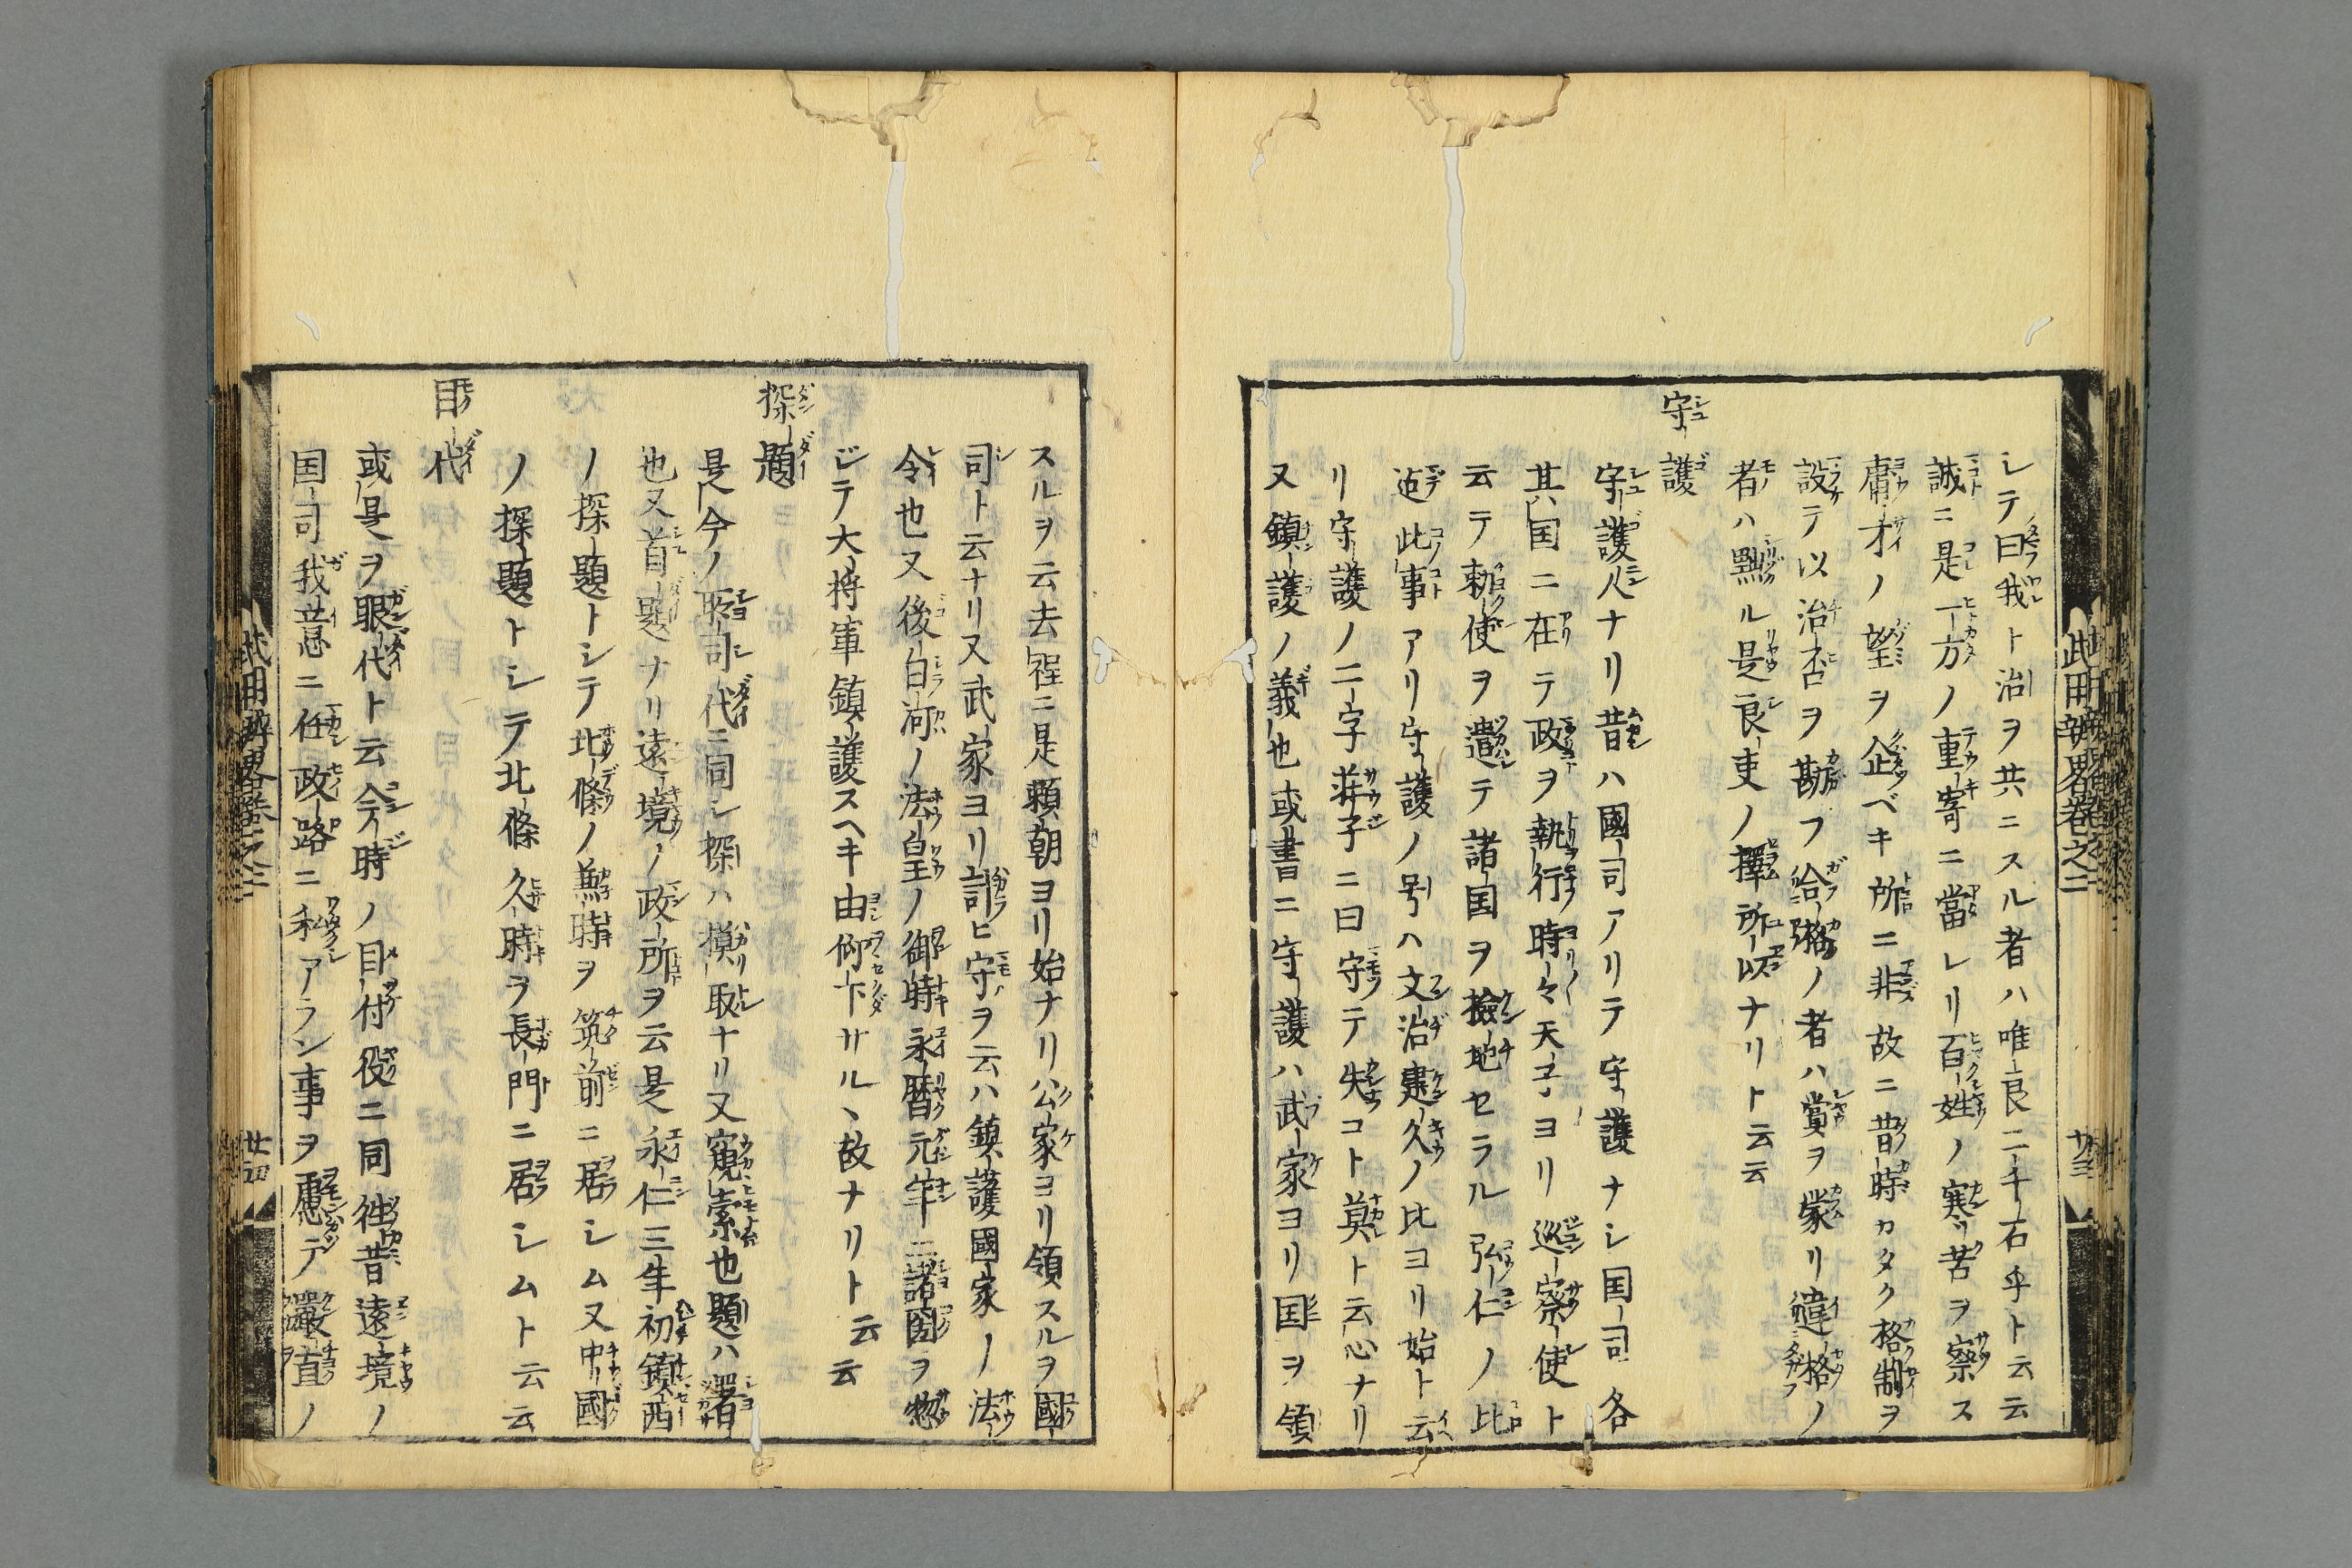 シテ曰我ト治ヲ共ニスル者ハ唯良二千石乎ト云云
誠ニ是一方ノ重寄ニ當レリ百姓ノ寒苦ヲ察ス
庸才ノ望ヲ企ベキ所ニ非故ニ昔時カタク格制ヲ
設テ以治否ヲ勘フ合格ノ者ハ賞ヲ蒙リ違格ノ
者ハ黜ル是良吏ノ擇所以ナリト云云
守護
守護人ナリ昔ハ國司アリテ守護ナシ国司各
其国ニ在テ政ヲ執行時々天子ヨリ巡察使ト
云テ勅使ヲ遣テ諸国ヲ撿地セラル弘仁ノ比
迠此事アリ守護ノ号ハ文治建久ノ比ヨリ始ト云
リ守護ノ二字荘子ニ曰守テ失コト莫ト云心ナリ
又鎮護ノ義也或書ニ守護ハ武家ヨリ国ヲ領
武用辨畧卷之二
廿三
スルヲ云去程ニ是頼朝ヨリ始ナリ公家ヨリ領スルヲ國
司ト云ナリ又武家ヨリ計ヒ守ヲ云ハ鎮護國家ノ法
令也又後白河ノ法皇ノ御時永暦元年ニ諸国ヲ惣
ジテ大将軍鎮護スヘキ由仰下サルヽ故ナリト云云
探題
是今ノ所司代ニ同シ探ハ摸取ナリ又窺索也題ハ署
也又首題ナリ遠境ノ政所ヲ云是永仁三年初鎮西
ノ探題トシテ北條ノ兼時ヲ筑前ニ居シム又中國
ノ探題トシテ北條久時ヲ長門ニ居シムト云云
目代
或是ヲ眼代ト云今時ノ目付役ニ同往昔遠境ノ
国司我意ニ任政路ニ私アラン事ヲ慮テ嚴直ノ
武用辨畧卷之二
廿四